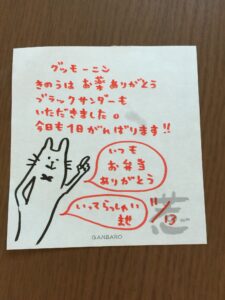 グッモーニン
きのうは お薬 ありがとう
ブラックサンダーも
いただきました。
今日も1日がんばります!!
いつも
お弁当
ありがとう
いってらっしゃい
11/13
GANBARO